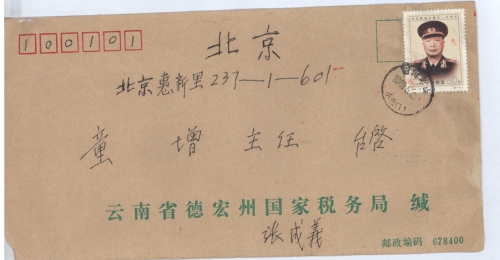 100101
北京
北京惠新里237—1—601
童增主任 台啓
云南省德宏州国家税务局 缄
张成義
邮政编码 678400